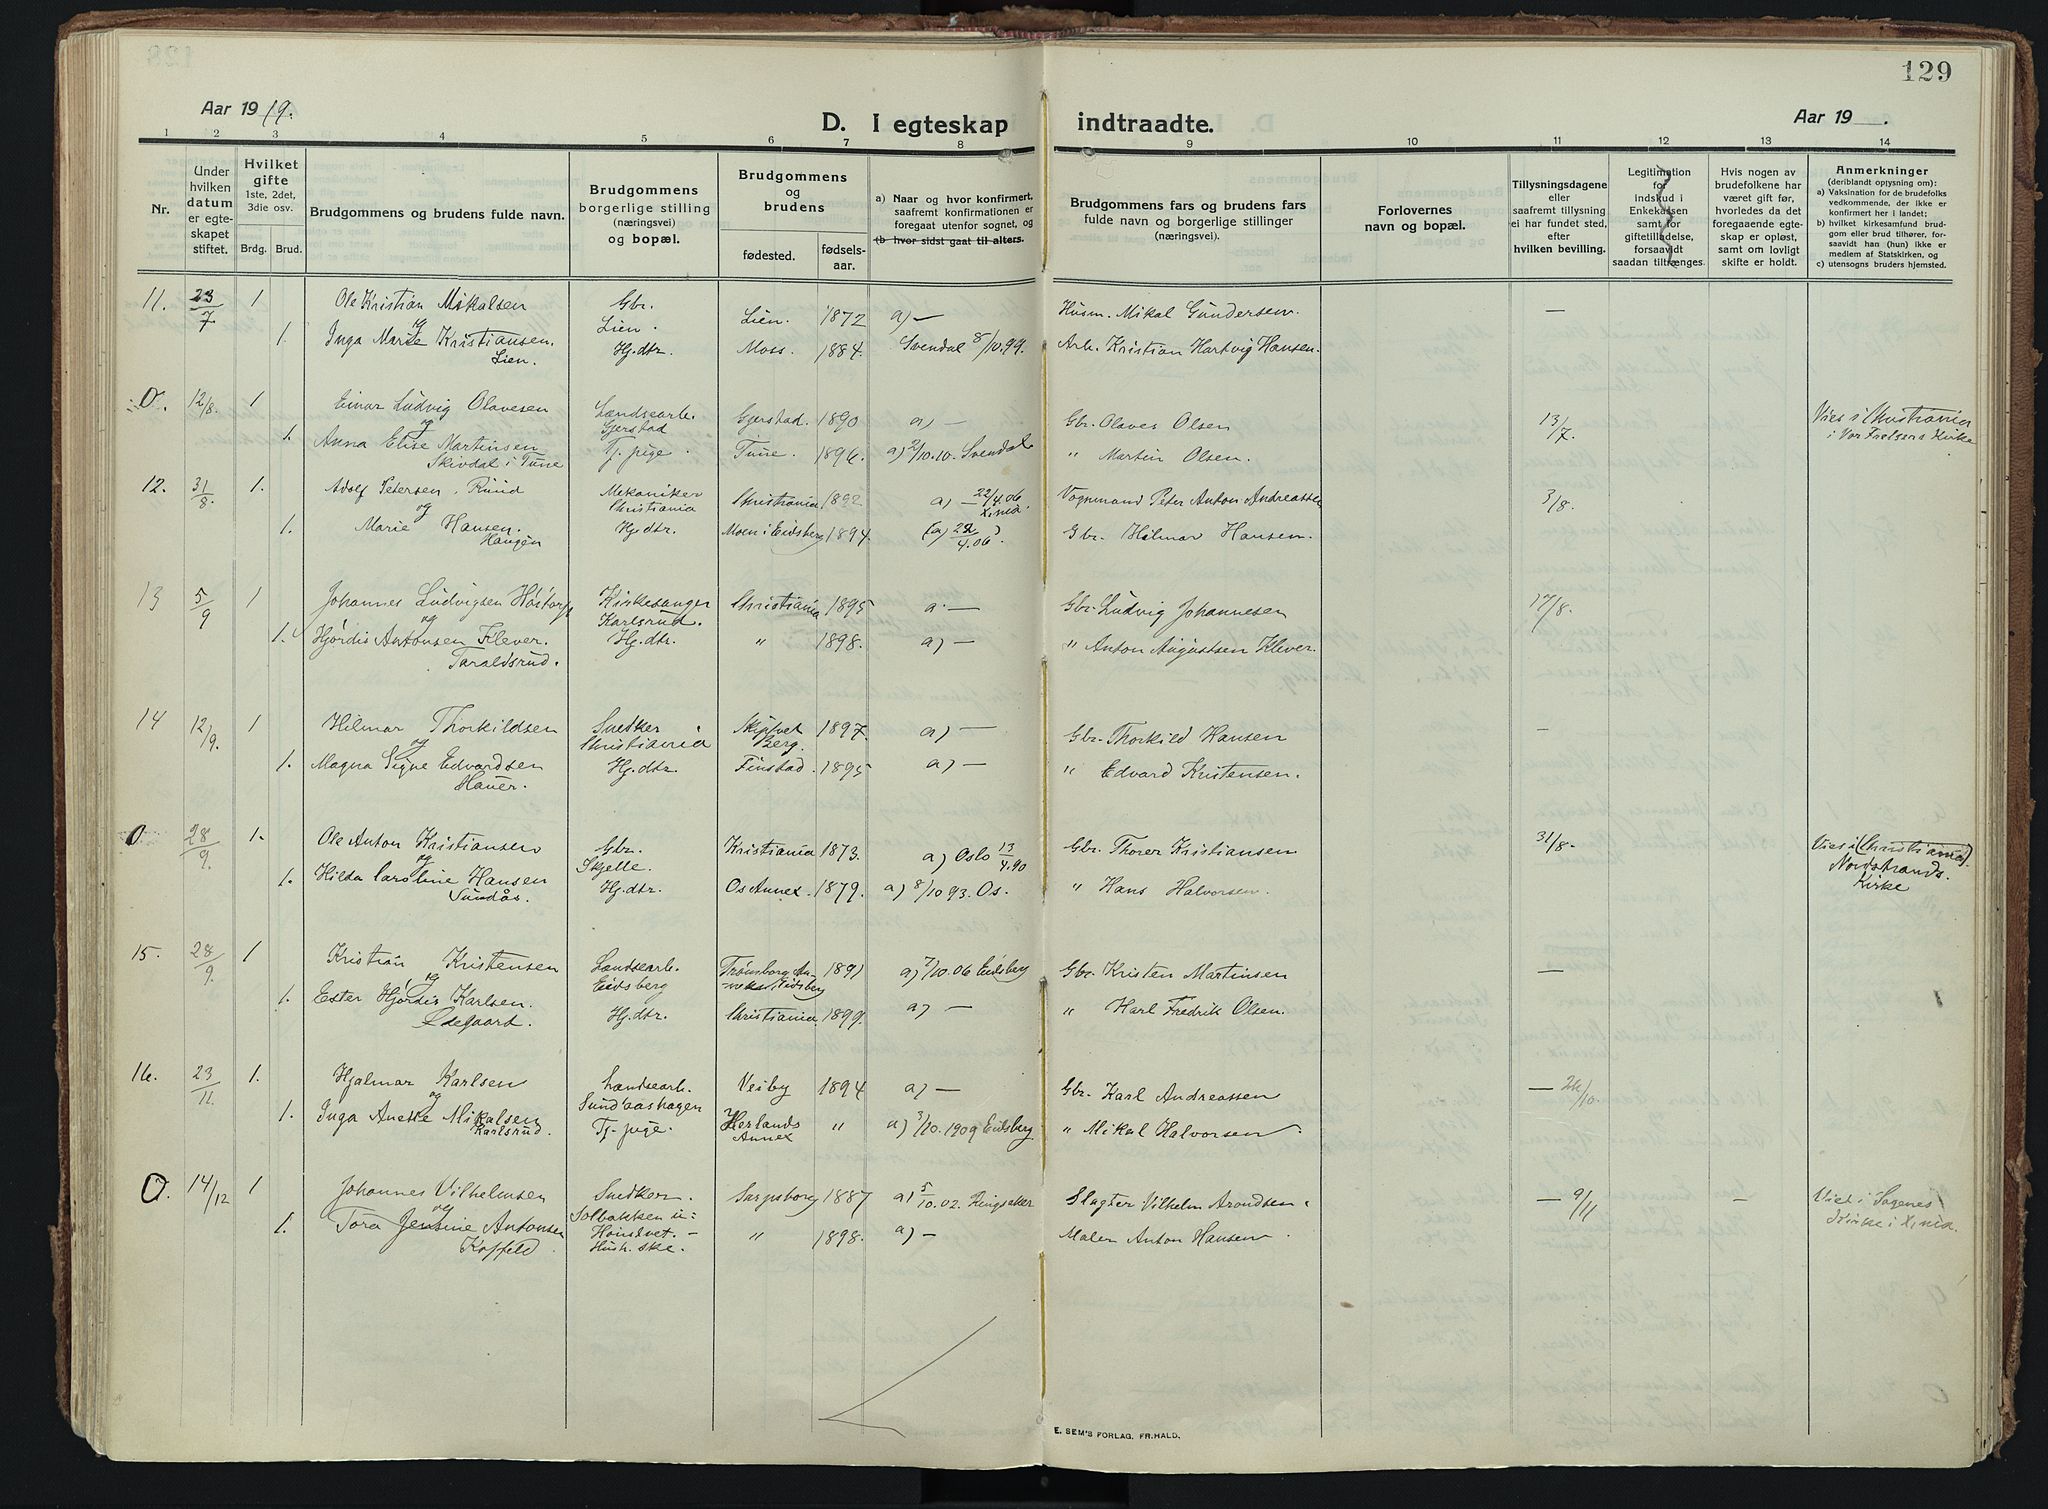 129
Aar 1919.
D. I egteskap indtraadte.
Aar 19 .
1 2 3 4 5 6 7 8 9 10 11 12 13 14
Nr.
Under hvilken datum er egteskapet stiftet.
Hvilket gifte 1ste, 2det, 3die osv.
Brdg. Brud.
Brudgommens og brudens fulde navn.
Brudgommens borgerlige stilling (næringsvei) og bopæl.
Brudgommens og brudens
fødested. fødselsaar.
a) Naar og hvor konfirmert, saafremt konfirmationen er foregaat utenfor sognet, og
(b hvor sidst gaat til alters.
Brudgommens fars og brudens fars fulde navn og borgerlige stillinger (næringsvei).
Forlovernes navn og bopæl.
Tillysningsdagene eller saafremt tillysning ei har fundet sted, efter hvilken bevilling.
Legitimation for indskud i Enkekassen samt for giftetilladelse, forsaavidt saadan tiltrænges.
Hvis nogen av brudefolkene har været gift før, hvorledes da det foregaaende egteskap er opløst, samt om lovligt skifte er holdt.
Anmerkninger (deriblandt oplysning om):
a) Vaksination for de brudefolks vedkommende, der ikke er konfirmert her i landet;
b) hvilket kirkesamfund brudgom eller brud tilhører, forsaavidt han (hun) ikke er medlem av Statskirken, og
c) utensogns bruders hjemsted.
11. 23/7 1 Ole Kristian Mikalsen Gbr. Lien. Lien. 1872 a) — Husm. Mikal Gundersen. —
og
1. Inga Marie Kristiansen. Lien. Hj.dtr. Moss. 1884. Svendal 8/10.99. Arb. Kristian Hartvig Hansen.
O. 12/8. 1 Einar Ludvig Olavesen Landsearb. Gjerstad Gjerstad. 1890 a) — Gbr. Olaves Olsen 13/7. Vies i Christiania i Vor Frelsers Kirke
og
1. Anna Elise Martinsen Skivdal i Tune Tj. pige. Tune. 1896. a) 2/10.10. Svendal " Martin Olsen.
12. 31/8. 1. Adolf Petersen Ruud Mekaniker Christiania Christiania 1892 a) 22/4.06 Xania. Vognmand Peter Anton Andreassen 3/8.
og
1. Marie Hansen. Haugen Hj.dtr. Moen i Eidsberg 1894. (a) 22/4.06). Gbr. Hilmar Hansen.
13 5/9 1 Johannes Ludvigsen Kirkesanger Karlsrud. Christiania 1895 a. — Gbr. Ludvig Johannesen 17/8.
og
1. Hjørdis Antonsen Klever. Taraldsrud. Hj.dtr. " 1898. a) — " Anton Augustsen Klever.
14 12/9. 1 Hilmar Thorkildsen Snedker Christiania Skiptvet Berg. 1897. a) — Gbr. Thorkild Hansen —
og
1. Magna Signe Edvardsen Hauer. Hj.dtr. Finstad. 1895 a) — " Edvard Kristensen.
O. 28/9. 1. Ole Anton Kristiansen Gbr. Skjelle. Kristiania 1873. a) Oslo 13/4.90 Gbr. Thorer Kristiansen 31/8. Vies i (Christiania). Nordstrands. Kirke
og
1. Hilda Caroline Hansen Sundås. Hj.dtr. Os Annex. 1879. a) 8/10 93. Os. " Hans Halvorsen.
15. 28/9. 1 Kristian Kristensen Landsearb. Eidsberg Trømborg Anneks Eidsberg 1891 a) 7/10.06 Eidsberg Gbr. Kristen Martinsen —
og
1. Ester Hjørdis Karlsen. Ødegaart. Hj.dtr. Christiania. 1899. a) — " Karl Fredrik Olsen.
16. 23/11. 1. Hjalmar Karlsen Landsearb. Sundaashagen Vesby 1894 a) — Gbr. Karl Andreassen — 26/10.
og
1. Inga Anette Mikalsen Karlsrud. Tj. pige. Herlands Annex " a) 3/10. 1909 Eidsberg " Mikal Halvorsen.
O. 14/12 1 Johannes Vilhelmsen Snedker. Sarpsborg 1887 a) 5/10.02. Ringsaker Slagter Vilhelm Arondsen — 9/11 — Vies i Sagenes Kirke i Xnia.
og
1. Tora Jensine Antonsen Solbakken " 1898. a) — Maler Anton Hansen.
E. SEM'S FORLAG. FR.HALD.